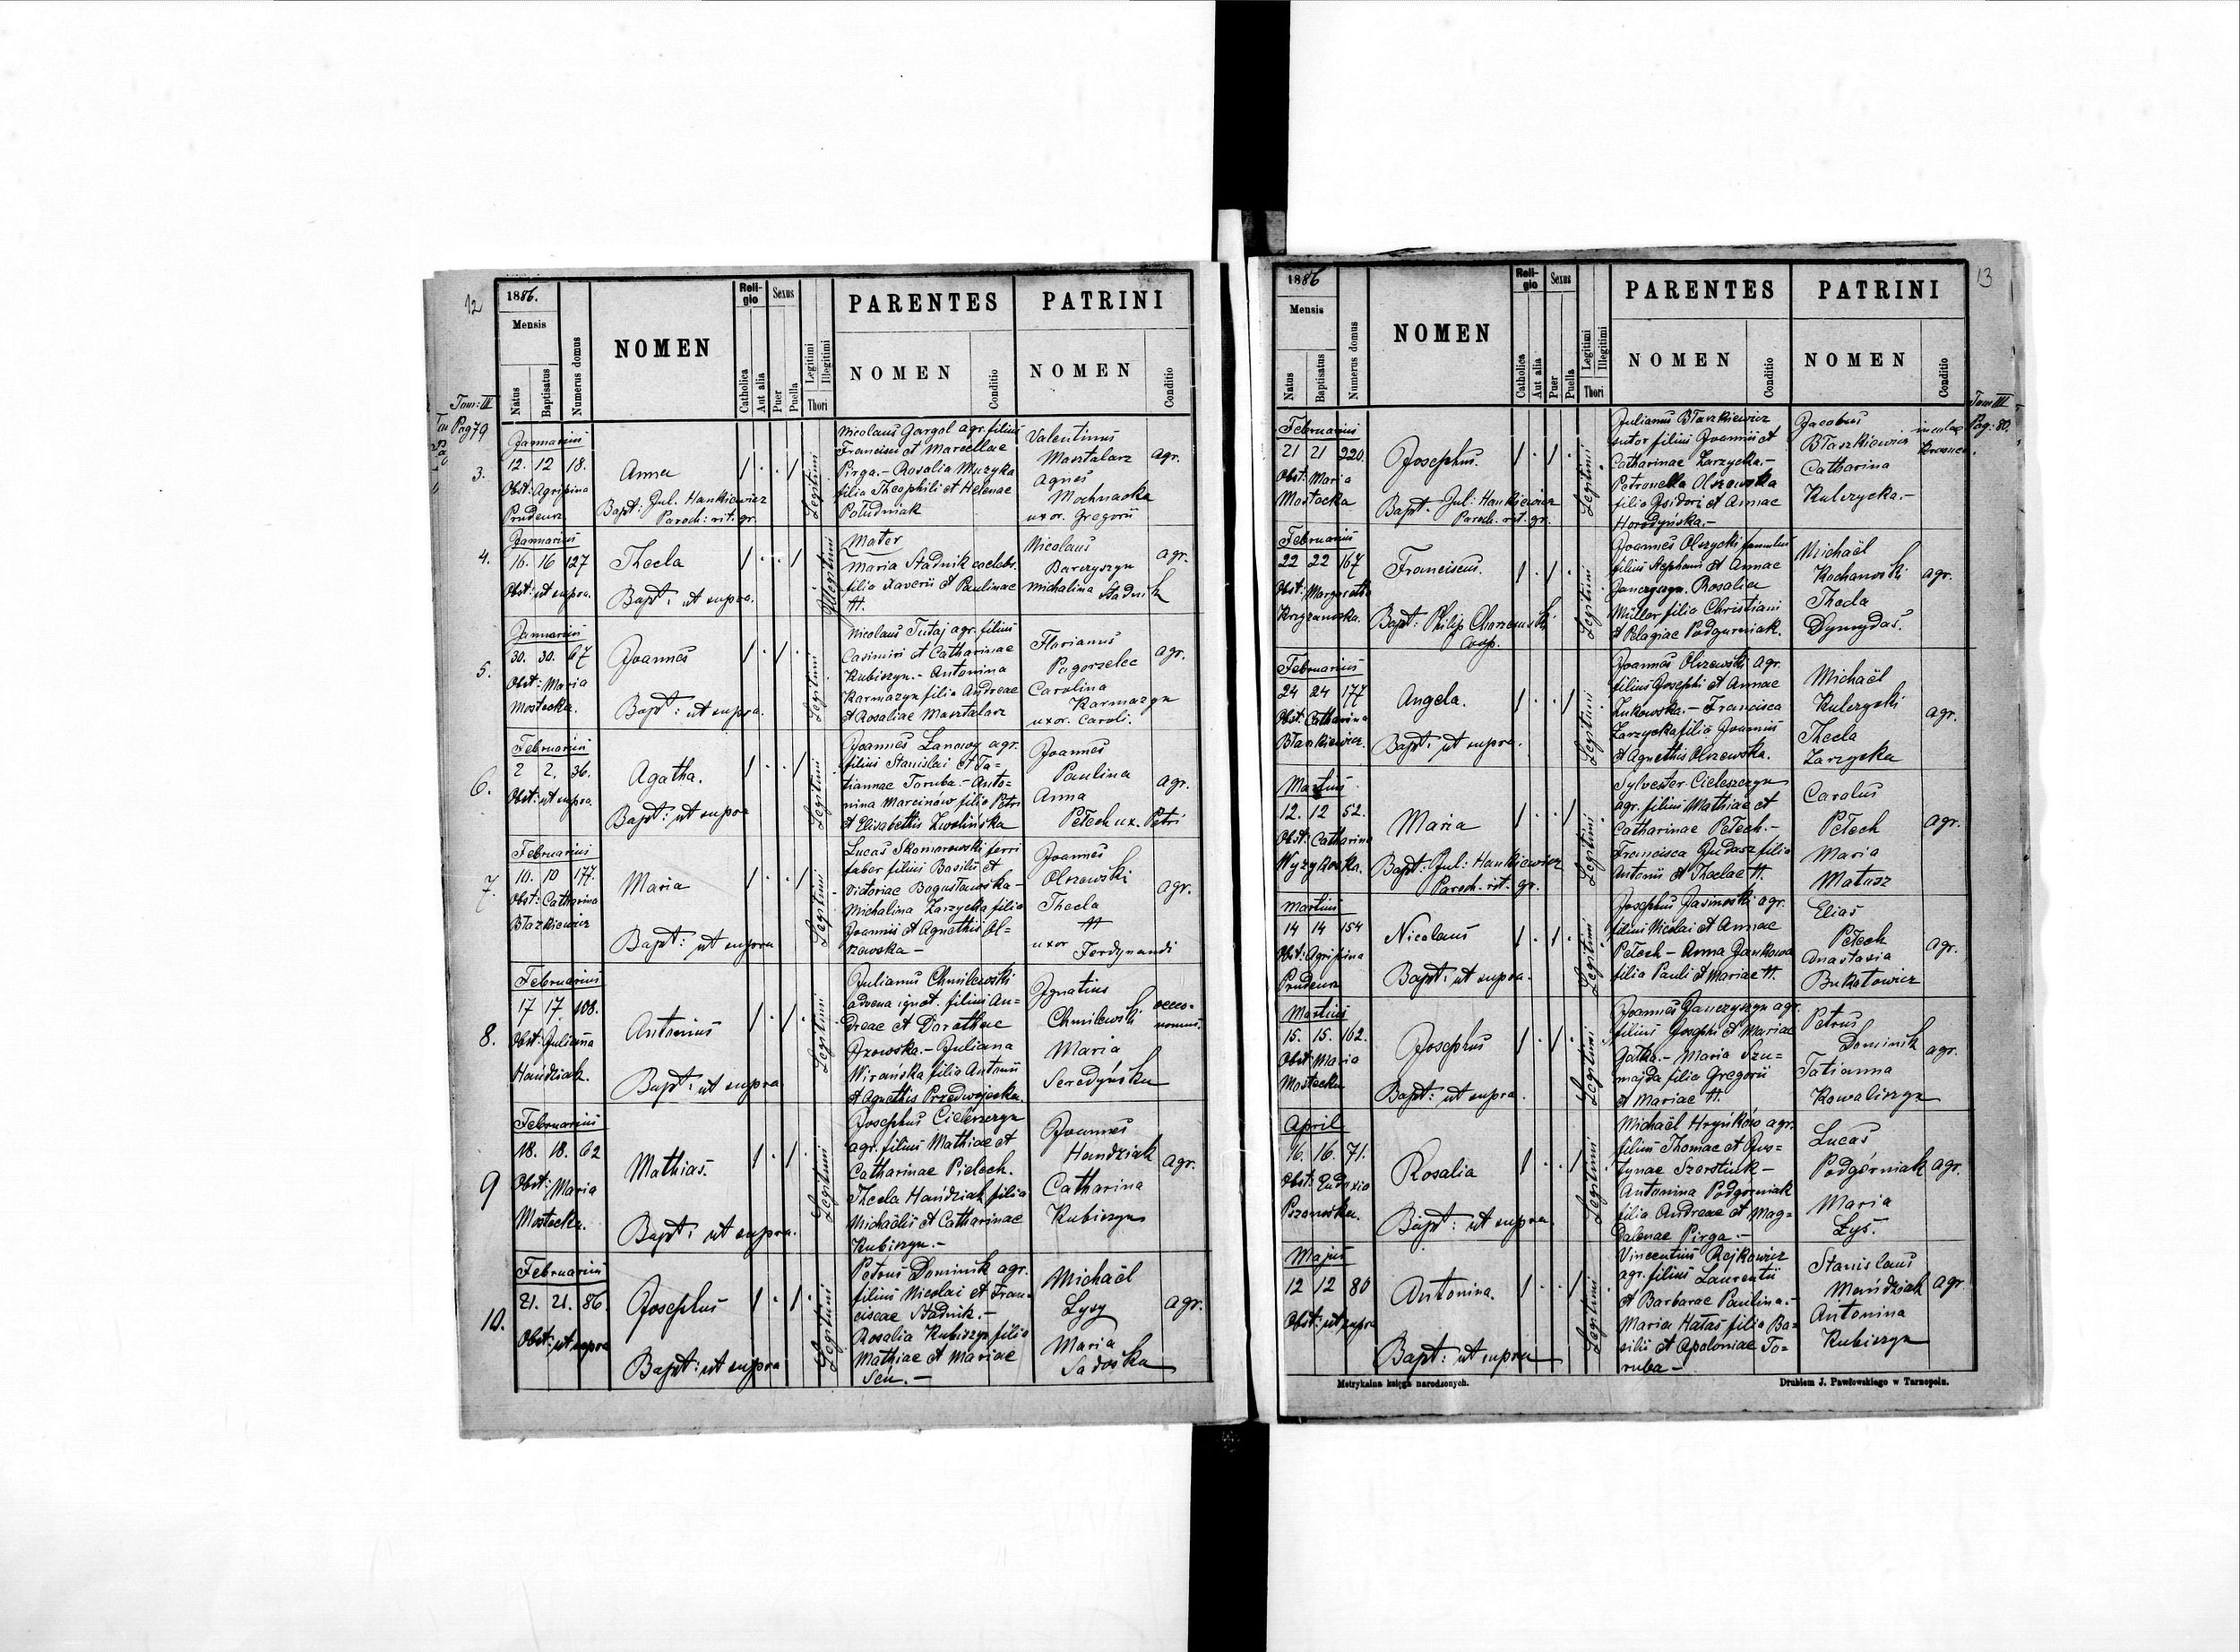 12
1886.
Mensis
Natus
Baptisatus
Numerus domus
NOMEN
Religio
Catholica
Aut alia
Sexus
Puer
Puella
Legitimi
Illegitimi
Thori
PARENTES
NOMEN
Conditio
PATRINI
NOMEN
Conditio
Tom: III
Pag 79
3.
Januarius
12. 12 18.
Obst: Agripina
Prudeus
Anna
Bapt: Jul. Hankiewicz
Paroch: rit. gr.
Legitimi
Nicolaus Gargol agr. filius
Francisci et Marcellae
Pirga. - Rosalia Muzyka
filia Theophili et Helenae
Południak
Valentinus
Masztalarz
Agnes
Mochnacka
uxor. Gregorii
agr.
4.
Januarius
16. 16 127
Obst: ut supra.
Thecla
Bapt: ut supra.
Illegitimi
Mater
Maria Stadnik caelebs.
filia Xaverii et Paulinae
H.
Nicolaus
Barczyszyn
Michalina Stadnik
agr.
5.
Januarius
30. 30. 67
Obst: Maria
Mostecka.
Joannes
Bapt: ut supra.
Legitimi
Nicolaus Tutaj agr. filius
Casimiri et Catharinae
Kubiszyn. - Antonina
Karmazyn filia Andreae
et Rosaliae Masztalarz
Florianus
Pogorzelec
Carolina
Karmazyn
uxor. Caroli.
agr.
6.
Februarius
2 2. 36.
Obst: ut supra
Agatha.
Bapt: ut supra
Legitimi
Joannes Łanowy agr.
filius Stanislai et Ta=
tiannae Toruba. - Anto=
nina Marcinów filia Petri
et Elisabethis Zwolińska
Joannes
Paulina
Anna
Petech ux. Petri
agr.
7.
Februarius
10. 10 177.
Obst: Catharina
Błazkiewicz
Maria
Bapt: ut supra
Legitimi
Lucas Skomorowski ferri
faber filius Basilii et
Victoriae Bogusławska -
Michalina Zarzycka filia
Joannis et Agnethis Ol=
szewska -
Joannes
Olszewski
Thecla
H
uxor Ferdynandi
agr.
8.
Februarius
17 17. 108.
Obst: Juliana
Hańdziak.
Antonius
Bapt: ut supra
Legitimi
Julianus Chmilewski
advena ignot. filius An=
dreae et Dorotheae
- Juliana
Wirańska filia Antonii
et Agnethis Przedwojecka.
Ignatius
Chmilewski
Maria
Seredyńska
oeco=
nomus.
9
Februarius
18. 18. 62
Obst: Maria
Mostecka.
Mathias.
Bapt: ut supra.
Legitimi
Josephus Cieleszczyn
agr. filius Mathiae et
Catharinae Pielech.
Thecla Hańdziak filia
Michaëlis et Catharinae
Kubiszyn. -
Joannes
Handziak
Catharina
Kubiszyn
agr.
10.
Februarius
21. 21. 86.
Obst: ut supra
Josephus
Bapt: ut supra
Legitimi
Petrus Dominik agr.
filius Nicolai et Fran=
ciscae Stadnik. -
Rosalia Kubiszyn filia
Mathiae et Mariae
Seń. -
Michaël
Łysy
Maria
Sadoska
agr.
13
1886
Mensis
Natus
Baptisatus
Numerus domus
NOMEN
Religio
Catholica
Aut alia
Sexus
Puer
Puella
Legitimi
Illegitimi
Thori
PARENTES
NOMEN
Conditio
PATRINI
NOMEN
Conditio
Tom III
Pag: 80.
Februarius
21 21 220.
Obst: Maria
Mostecka
Josephus.
Bapt. Jul: Hankiewicz
Paroch. rit. gr.
Legitimi
Julianus Błaszkiewicz
sutor filius Joannis et
Catharinae Zarzycka. -
Petronella Olszowska
filia Isidori et Annae
Horodyńska. -
Jacobus
Błaszkiewicz
Catharina
Kulczycka. -
incolae
Februarius
22 22 167
Obst: Margaretha
Krzyzanowska.
Franciscus.
Bapt: Philip
Coop.
Legitimi
Joannes Olszycki famulus
filius Stephani et Annae
Janczyszyn. Rosalia
Müller filia Christiani
et Pelagiae Podgurniak.
Michaël
Kochanowski
Thecla
Dymydas.
agr.
Februarius
24 24 177
Obst: Catharina
Błazkiewicz.
Angela.
Bapt: ut supra.
Legitimi
Joannes Olszewski agr.
filius Josephi et Annae
Żukowska. - Francisca
Zarzycka filia Joannis
et Agnethis Olszewska.
Michaël
Kulczycki
Thecla
Zarzycka
agr.
Martius
12. 12 52.
Obst: Catharina
Wyzykowska.
Maria
Bapt: Jul: Hankiewicz
Paroch. rit. gr.
Legitimi
Sylvester Cieleszczyn
agr. filius Mathiae et
Catharinae Petech. -
Francisca Judasz filia
Antonii et Theclae H.
Carolus
Petech
Maria
Matusz
agr.
Martius
14 14 154
Obst: Agripina
Prudeus
Nicolaus
Bapt: ut supra.
Legitimi
Josephus Jasinoski agr.
filius Nicolai et Annae
Petech - Anna Jankowa
filia Pauli et Mariae H.
Elias
Petech
Anastasia
Bukotowicz
agr.
Martius
15. 15. 162.
Obst: Maria
Mostecka
Josephus
Bapt: ut supra.
Legitimi
Joannes Janczyszyn agr.
filius Josephi et Mariae
Gałka. - Maria Szu=
majda filia Gregorii
et Mariae H.
Petrus
Dominik
Tatianna
Kowaliszyn
agr.
April
16. 16. 71.
Obst: Eudoxia
Rosalia
Bapt: ut supra
Legitimi
Michaël Hryńków agr.
filius Thomae et Jus=
tynae Szerstiuk -
Antonina Podgorniak
filia Andreae et Mag=
dalenae Pirga. -
Lucas
Podgórniak
Maria
Łyś.
agr.
Majus
12 12 80
Obst: ut supra
Antonina.
Bapt: ut supra
Legitimi
Vincentius Rejkowicz
agr. filius Laurentii
et Barbarae Paulina. -
Maria Hatas filia Ba=
silii et Apoloniae To=
ruba -
Stanislaus
Mańdziak
Antonina
Kubiszyn
agr
Metrykalna księga narodzonych.
Drukiem J. Pawłowskiego w Tarnopolu.